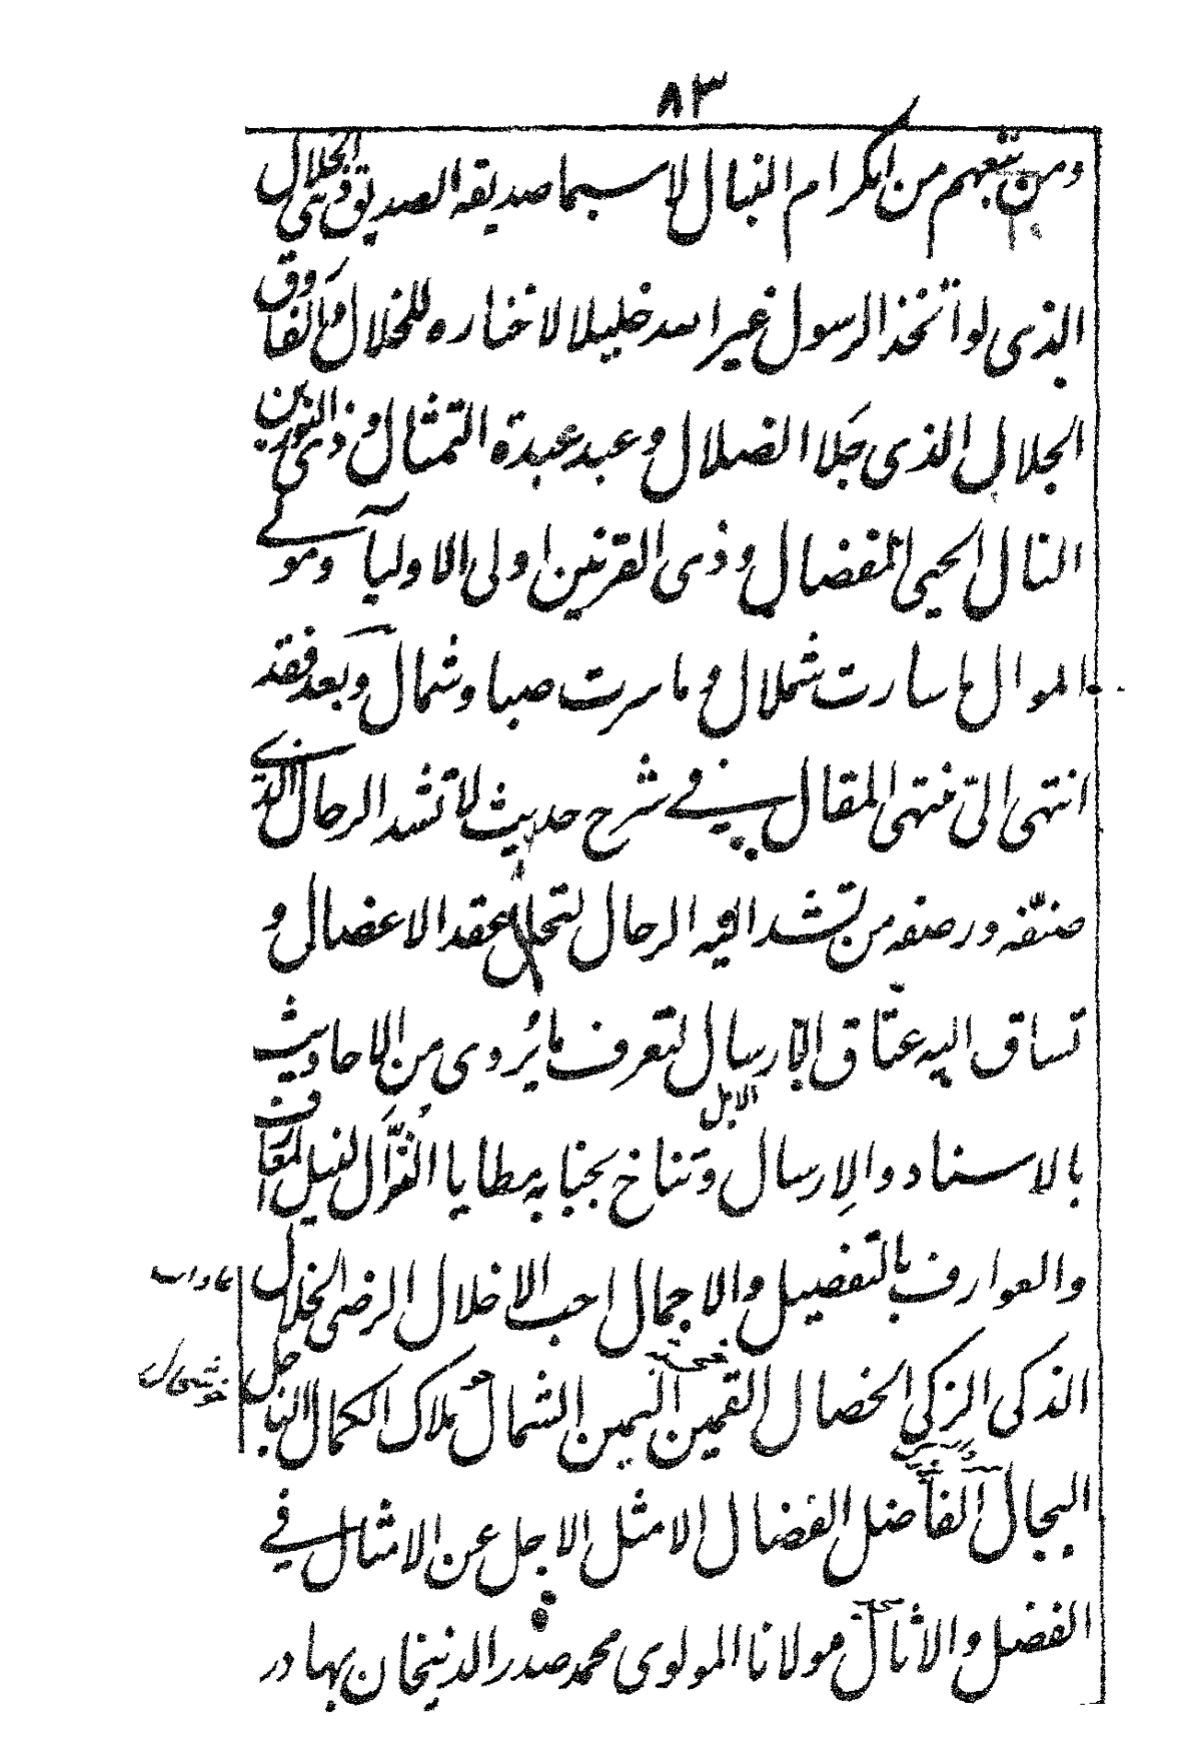 ٨٣
ومن تبعهم من الكرام النبال لا سيما صديقه الصديق فى الجلال
الذى لو اتخذ الرسول غير الله خليلا لاختاره للخلال والفاروق
الجلال الذى جلا الضلال وعبد عبدة التمثال وذى النورين
النال الحيى المفضال وذى القرنين اولى الاوليآ ومولے
الموال ما سارت شملال وما سرت صبا وشمال وبعد فقد
انتهى الىّ منتهى المقال فے شرح حديث لا تشد الرحال الذى
صنّفه ورصفه من تشد اليه الرحال لتحل عقد الاعضال و
تساق اليه عتاق الارسال لتعرف ما يُروى من الاحاديث
الابل
بالاسناد والارسال وتناخ بجنابه مطايا النُزَّال لنيل المعارف
والعوارف بالتفصيل والاجمال احب الاخلال الرضى الخلال
الذكى الزكى الخصال القمين اليمين الشمال ملاك الكمال النبا حل
خوشحال
البجال الفاضل الفضال الامثل الاجل عن الامثال فے
الفضل والاثال مولانا المولوى محمد صدر الدينخان بهادر